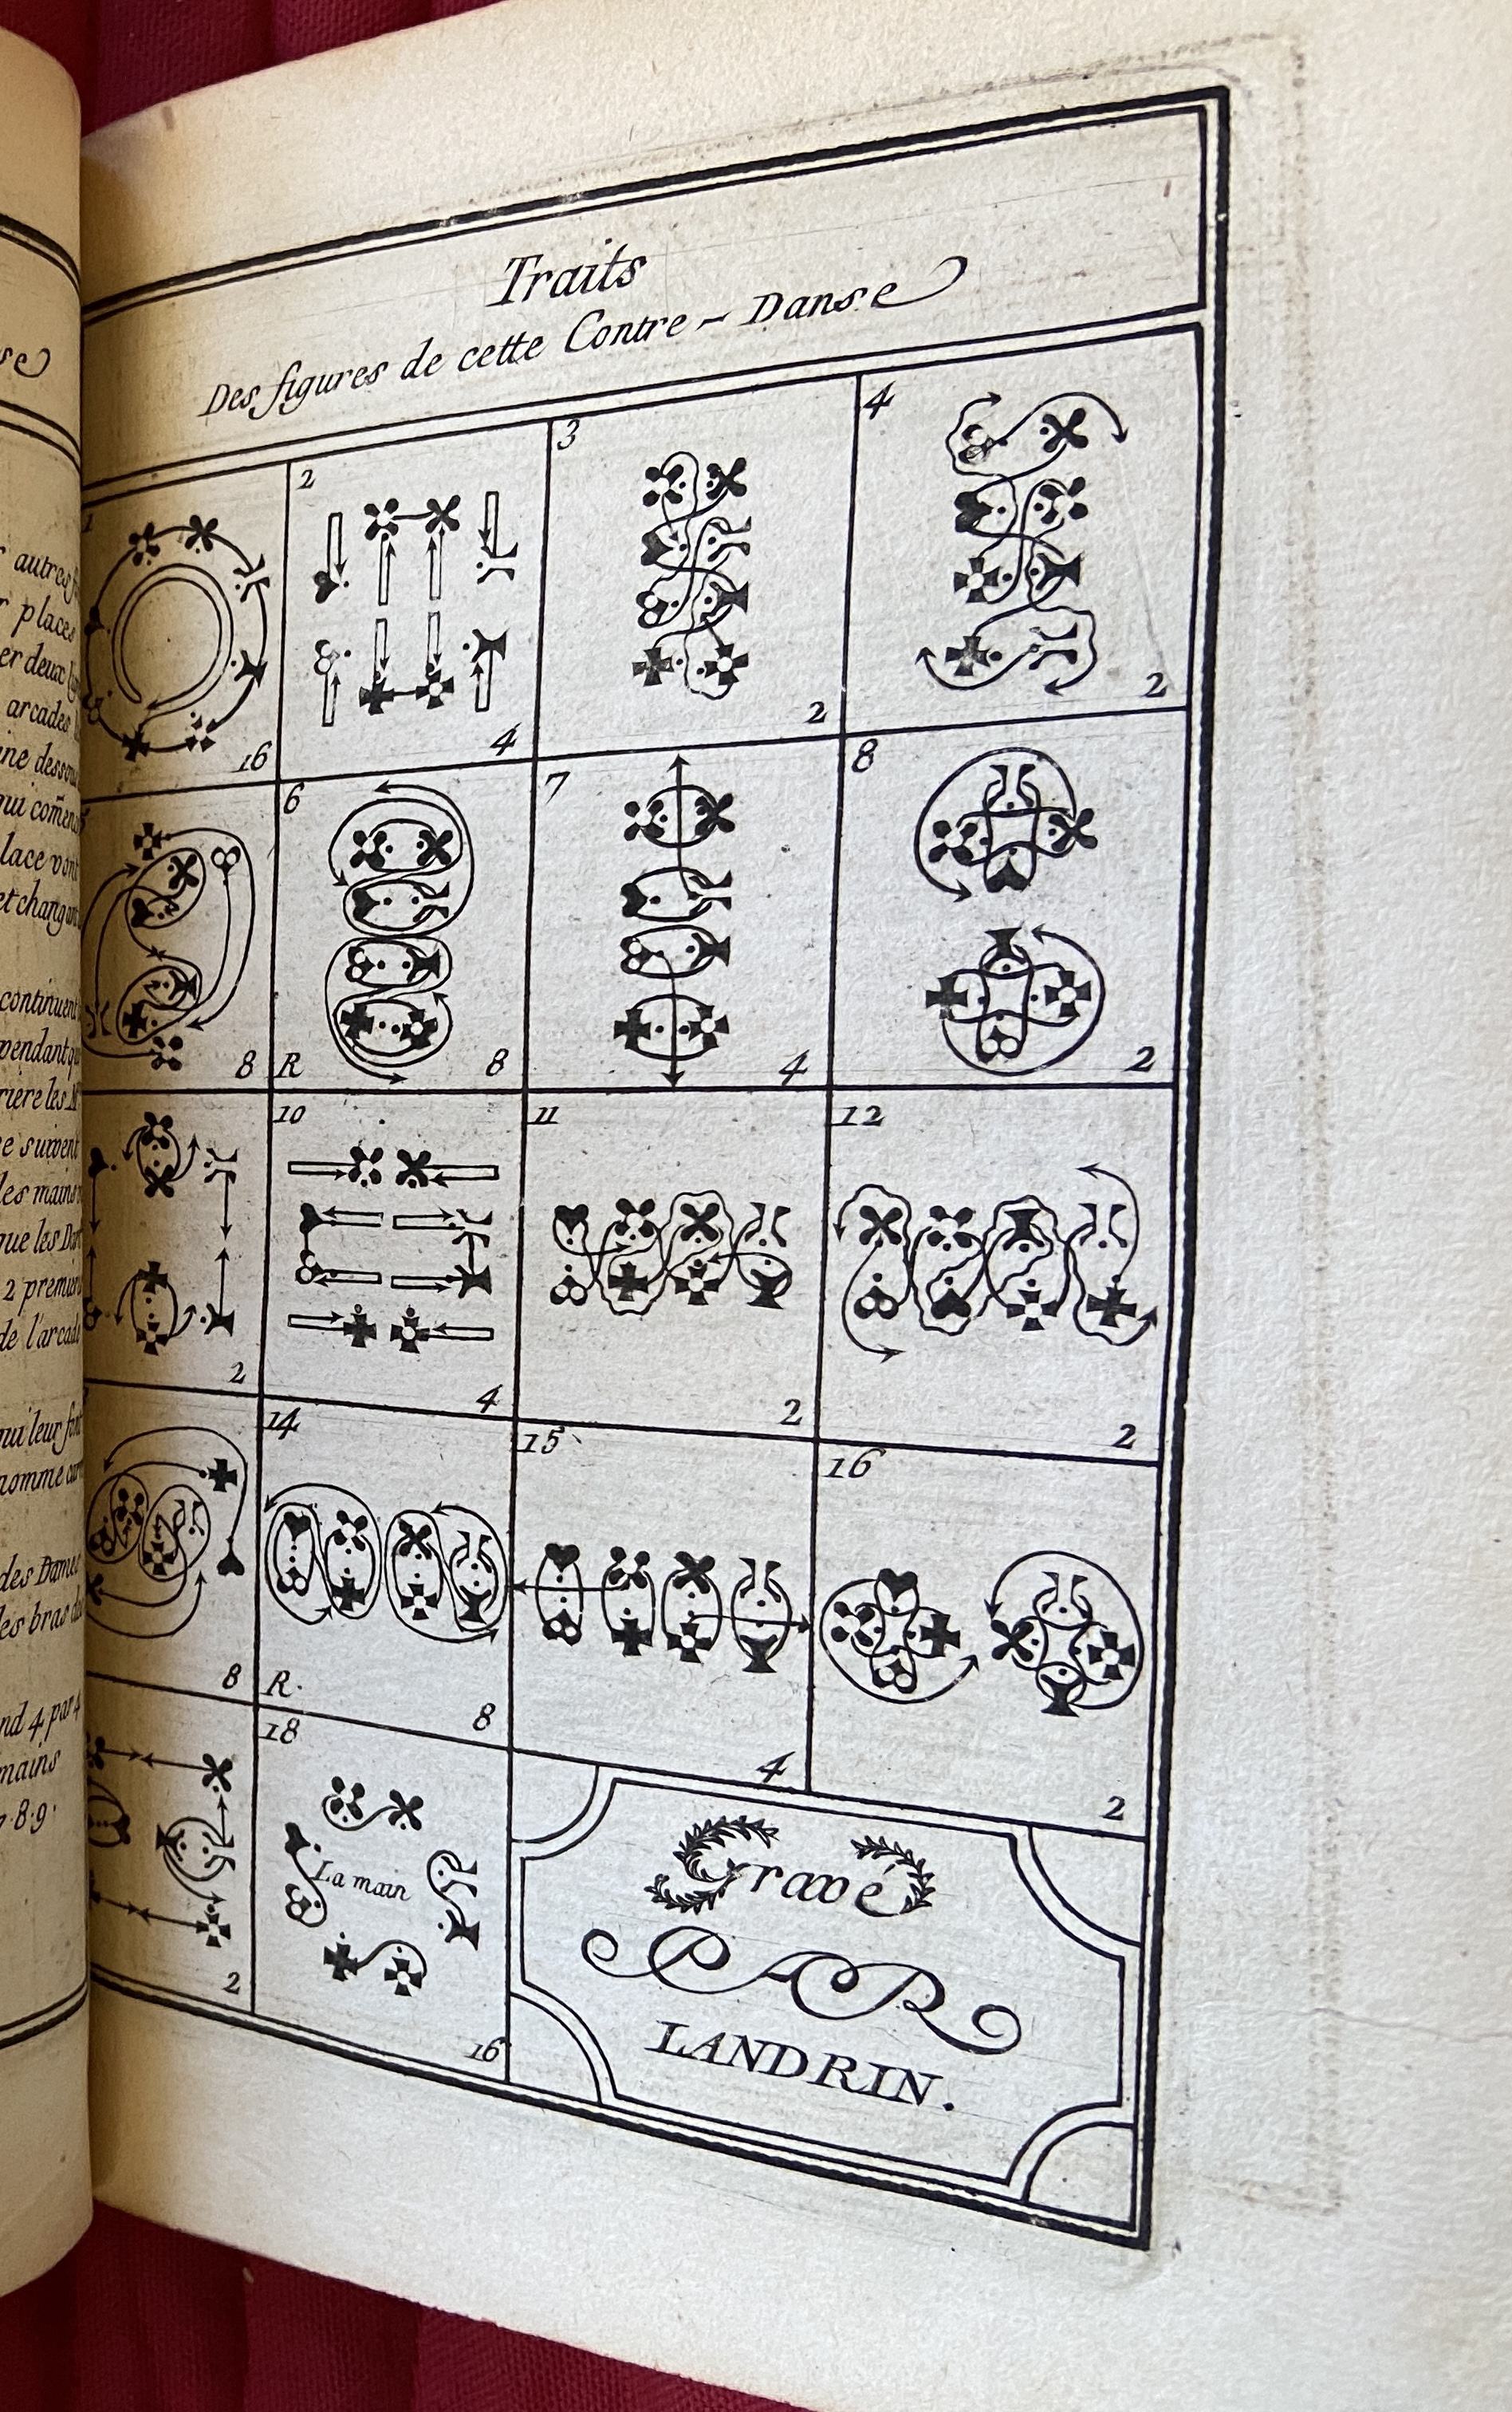 Traits
Des figures de cette Contre - Danse
1
16
2
4
3
2
4
2
8
6
R
8
7
4
8
2
2
10
4
11
2
12
2
8
14
R.
8
15
4
16
2
2
18
La main
16
Gravé
PAR
LANDRIN.
se
autres
places
er deux
arcades
ine dessou
qui comēn
lace vont
et changan
continuent
pendant qu
rière les M
e suivent
les mains
que les Da
2 premier
de l'arcade
qui leur font
homme
des Dames
les bras
nd 4 par 4
mains
8.9.